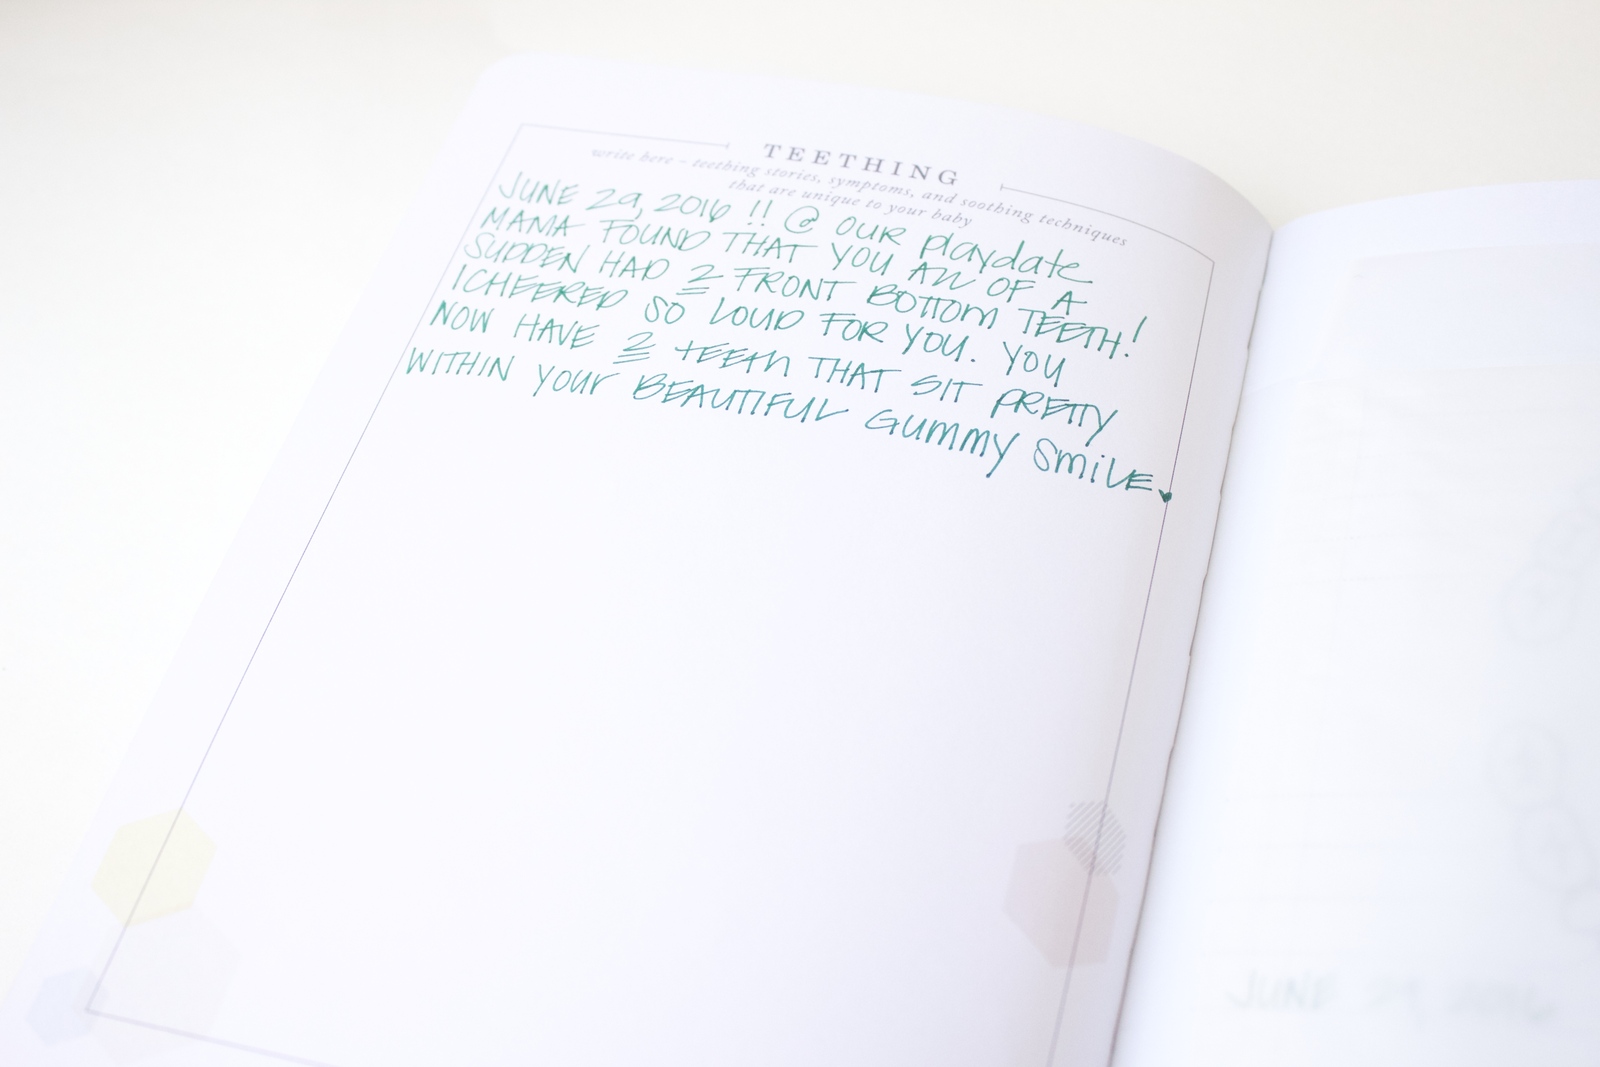 TEETHING
write here – teething stories, symptoms, and soothing techniques
that are unique to your baby
JUNE 29, 2016 !! @ OUR playdate
MAMA FOUND THAT YOU All OF A
SUDDEN HAD 2 FRONT BOTTOM TEETH!
I CHEERED SO LOUD FOR YOU. YOU
NOW HAVE 2 tEEth THAT SIT PREttY
WITHIN YOUr BEAUTIFUL GUMMY SMiLE.♥
JUNE 29 2016